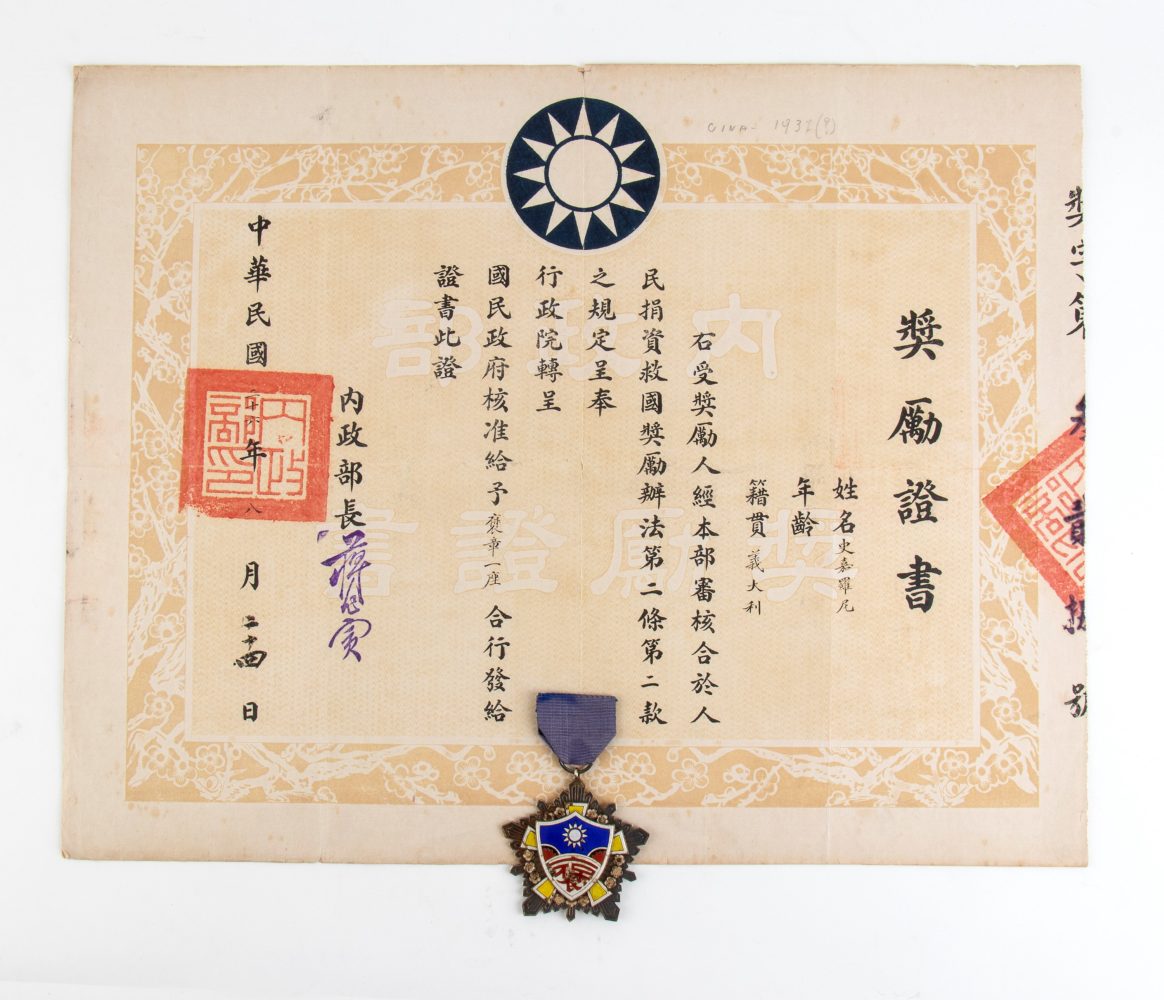 CINA - 193
獎字第 貳 號
獎勵證書
姓名史嘉羅尼
年齡
籍貫義大利
右受獎勵人經本部審核合於人
民捐資救國獎勵辦法第二條第二款
之規定呈奉
行政院轉呈
國民政府核准給予褒章一座合行發給
證書此證
內政部長蔣作賓
中華民國二十六年八月二十四日
內政部
獎勵證書
內政部印